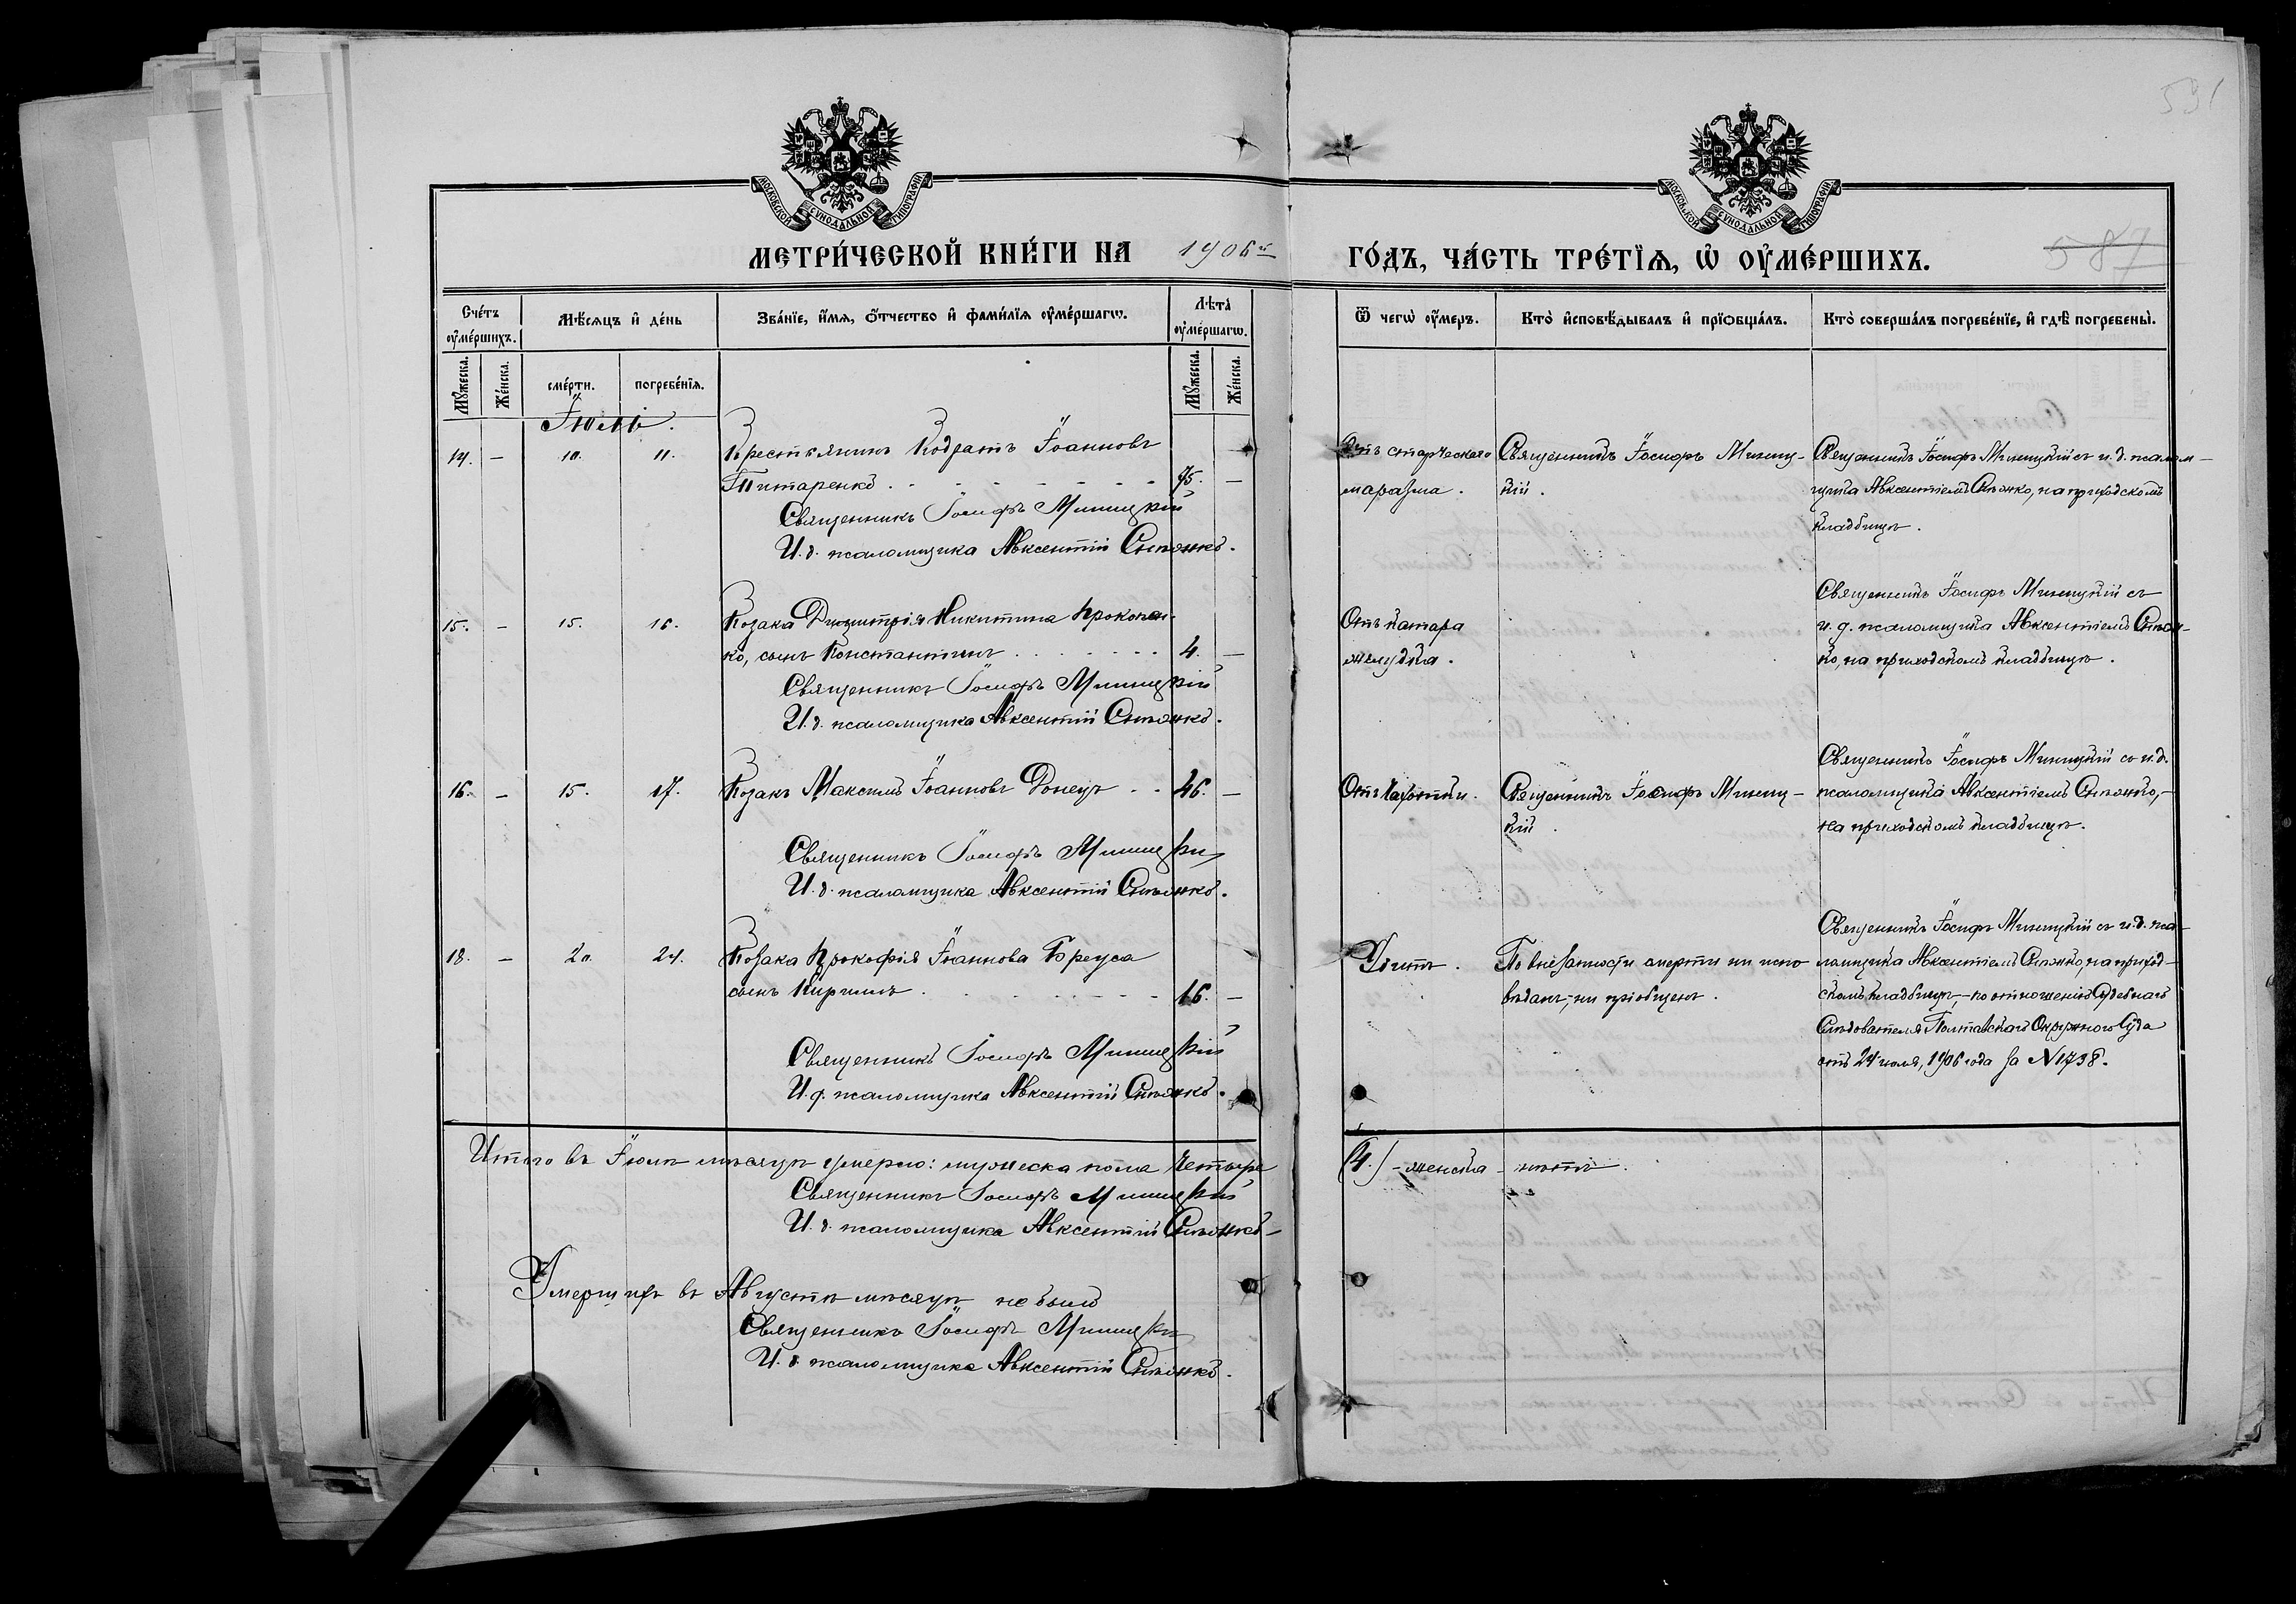 591
МОСКОВСКОЙ СУНОДАЛЬНОЙ ТИПОГРАФІИ
МОСКОВСКОЙ СУНОДАЛЬНОЙ ТИПОГРАФІИ
МЕТРИ́ЧЕСКОЙ КНИ́ГИ НА 1906й ГО́ДЪ, ЧА́СТЬ ТРЕ́ТІѦ, Ѡ҆ ОУ҆МЕ́РШИХЪ.
587
Сче́тъ оу҆ме́ршихъ.
Мѣ́сяцъ и҆ де́нь
Зва́нїе, и҆́мя, ѻ҆́тчество и҆ фами́лїя оу҆ме́ршагѡ.
Лѣта̀ оу҆ме́ршагѡ.
Ѿ чегѡ̀ оу҆́меръ.
Кто̀ и҆сповѣ́дывалъ и҆ прїѡбща́лъ.
Кто̀ соверша́лъ погребе́нїе, и҆ гдѣ̀ погребены̀.
Мꙋ́жеска.
Же́нска.
сме́рти.
погребе́нїя.
Мꙋ́жеска.
Же́нска.
Іюль.
14. – 10. 11. Крестьянинъ Кодратъ Іоанновъ
Титаренко . . . . . . . 75. –
Священникъ Іосифъ Миницкій
И. д. псаломщика Авксентій Стеонко.
Отъ старческаго
маразма.
Священникъ Іосифъ Миниц-
кій.
Священникъ Іосифъ Миницкій съ и. д. псалом-
щика Авксентіемъ Стеонко, на приходскомъ
кладбищѣ.
15. – 15. 16. Козака Димитрія Никитина Прокопен-
ко, сынъ Константинъ . . . . . . . 4. –
Священникъ Іосифъ Миницкій
И. д. псаломщика Авксентій Стеонко.
Отъ катара
желудка.
Священникъ Іосифъ Миницкій съ
и. д. псаломщика Авксентіемъ Стеон-
ко, на приходскомъ кладбищѣ.
16. – 15. 17. Козакъ Максимъ Іоанновъ Донецъ . . 46. –
Священникъ Іосифъ Миницкій
И. д. псаломщика Авксентій Стеонко.
Отъ чахотки.
Священникъ Іосифъ Миниц-
кій.
Священникъ Іосифъ Миницкій съ и. д.
псаломщика Авксентіемъ Стеонко,-
на приходскомъ кладбищѣ.
18. – 20. 24. Козака Прокофія Іоаннова Бреуса
сынъ Кириллъ . . . . . . 16. –
Священникъ Іосифъ Миницкій
И. д. псаломщика Авксентій Стеонко.
Убитъ.
По внезапности смерти ни испо-
вѣданъ, ни пріобщенъ.
Священникъ Іосифъ Миницкій съ и. д. пса-
ломщика Авксентіемъ Стеонко, на приход-
скомъ кладбищѣ, - по отношенію Судебнаго
Слѣдователя Полтавскаго Окружного Суда
отъ 24 іюля, 1906 года за № 1738.
Итого въ Іюлѣ мѣсяцѣ умерло: мужеска пола четыре (4.) - женска - нѣтъ.
Священникъ Іосифъ Миницкій
И. д. псаломщика Авксентій Стеонко
Умершихъ въ Августѣ мѣсяцѣ не было
Священникъ Іосифъ Миницкій
И. д. псаломщика Авксентій Стеонко.